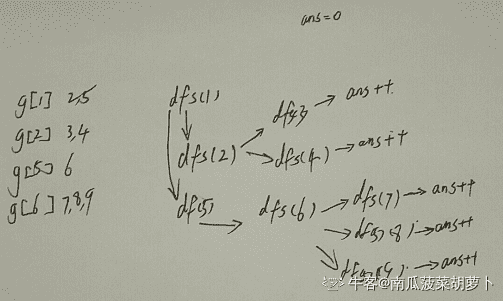 ans=0
g[1] 2,5
g[2] 3,4
g[5] 6
g[6] 7,8,9
dfs(1)
dfs(2)
ans++
dfs(4) ans++
df(5)
dfs(6)
dfs(7) ans++
ans++
ans++
牛客@南瓜菠菜胡萝卜